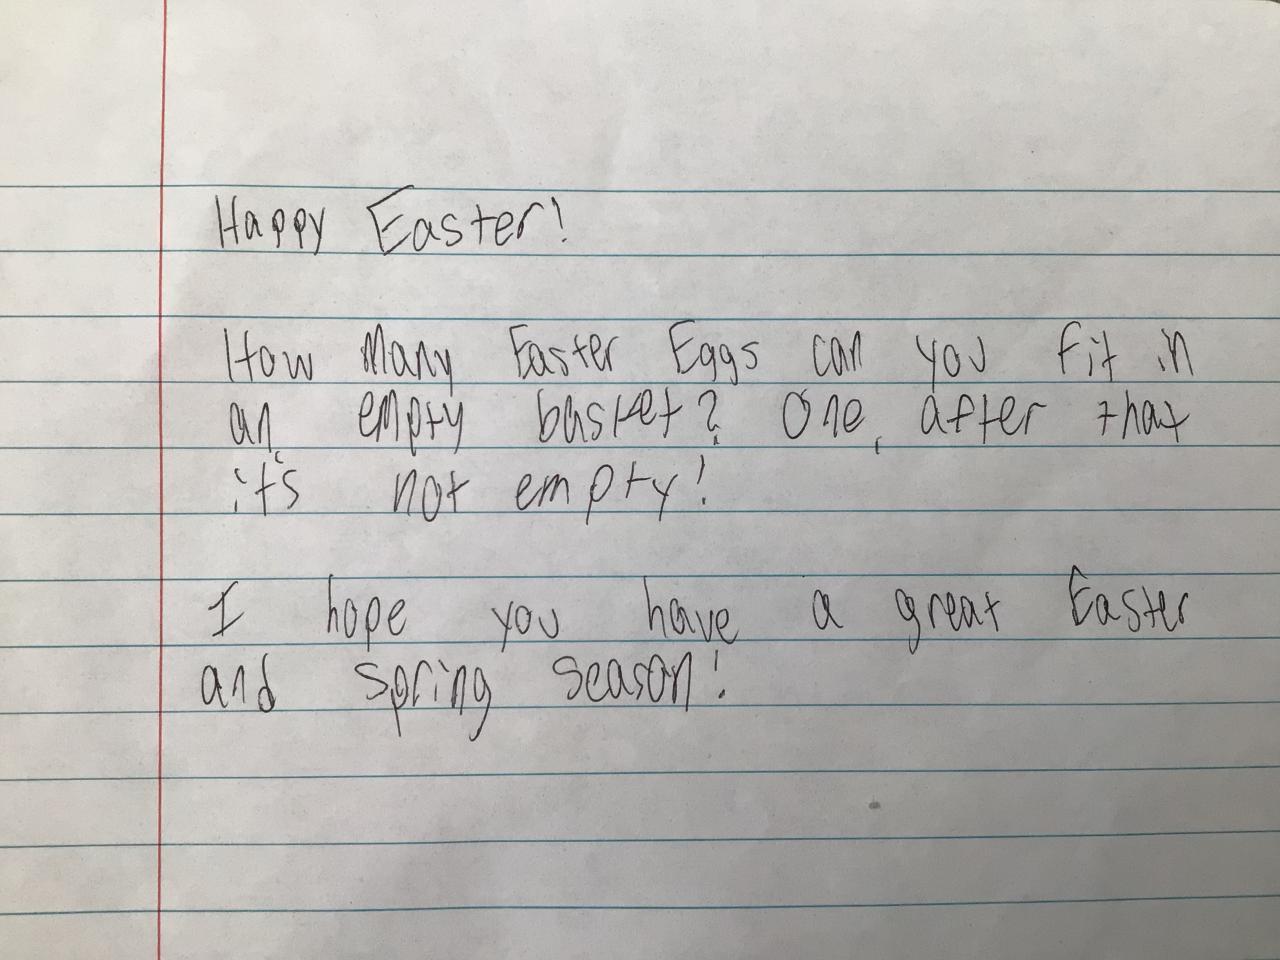 Happy Easter!
How Many Easter Eggs can you fit in
an empty basket? One, after that
it's not empty!
I hope you have a great Easter
and spring season!